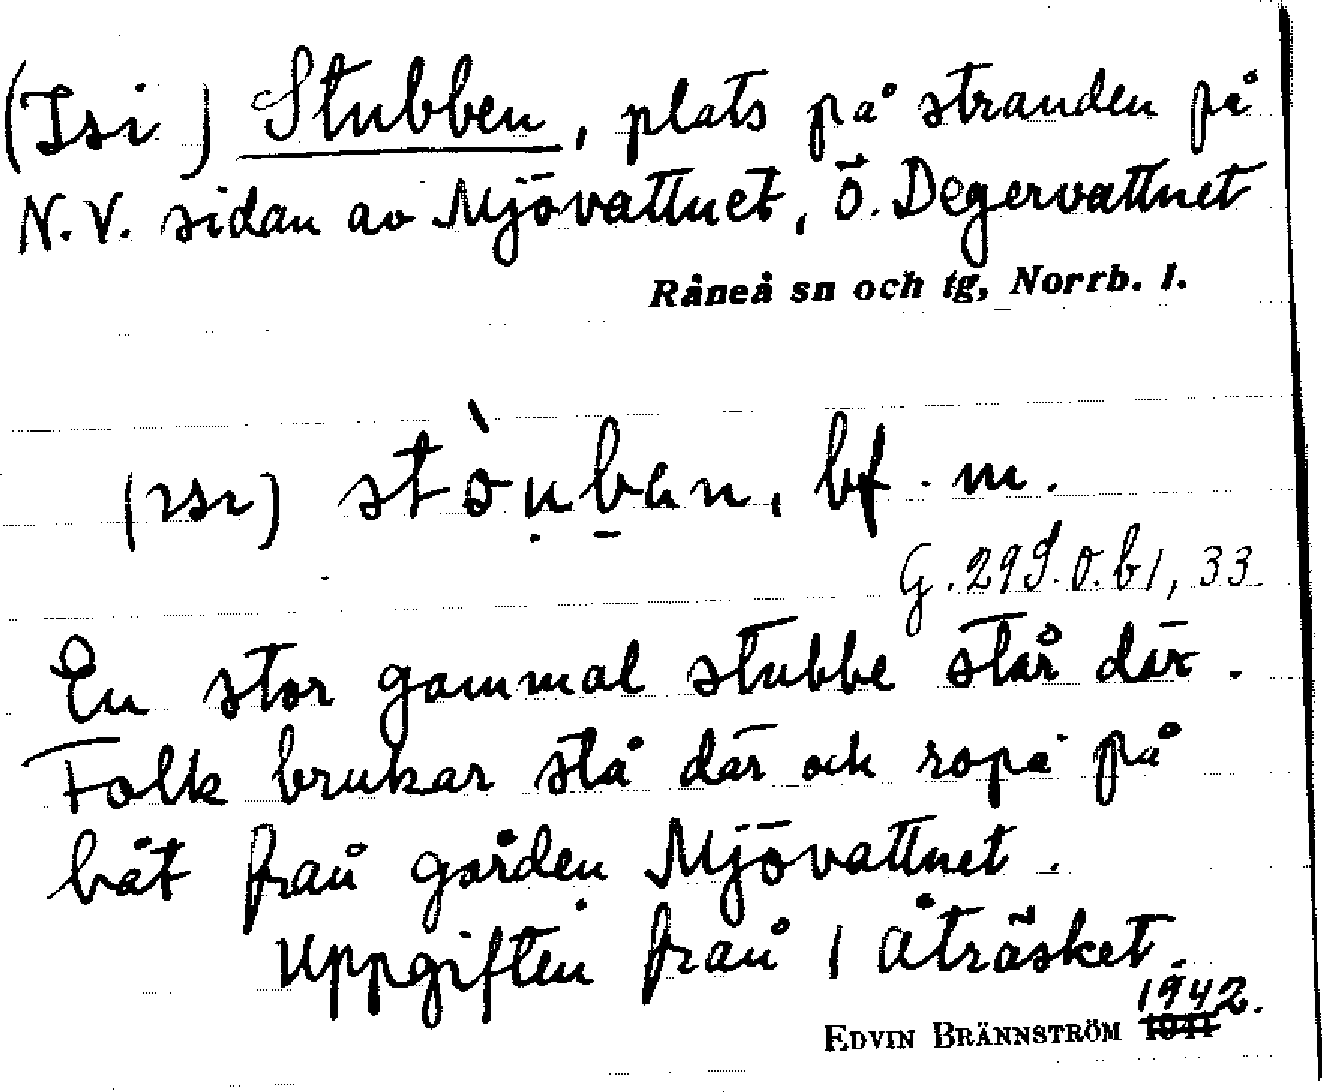 (Isi) Stubben, plats på stranden på
N.V. sidan av Mjövattnet, Ö. Degervattnet
Råneå sn och tg, Norrb. l.
(ısı) stòu̩b̠an, bf. m.
G. 299. Ö. b1, 33
En stor gammal stubbe står där.
Folk brukar stå där och ropa på
båt från gården Mjövattnet.
Uppgiften från 1 Åträsket.
1942.
EDVIN BRÄNNSTRÖM 1941